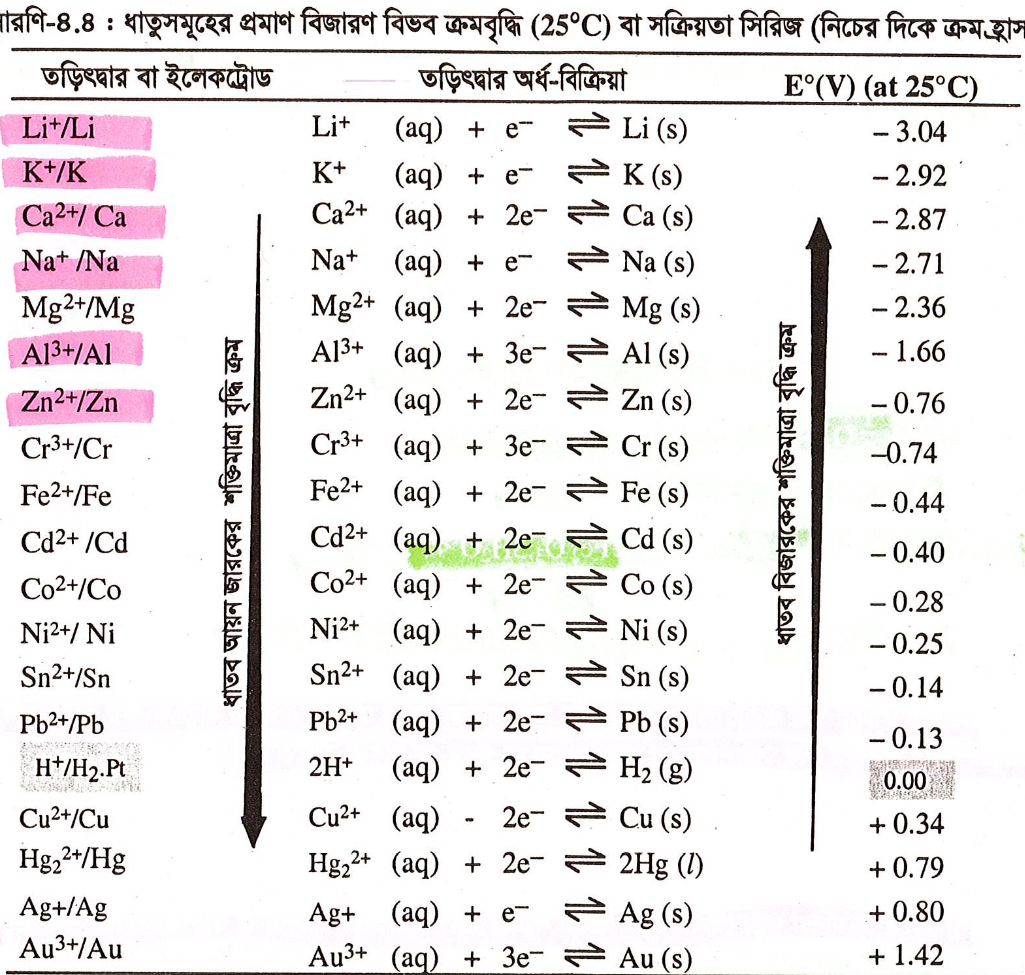 সারণি-৪.৪ : ধাতুসমূহের প্রমাণ বিজারণ বিভব ক্রমবৃদ্ধি (25°C) বা সক্রিয়তা সিরিজ (নিচের দিকে ক্রম.হ্রাস
তড়িৎদ্বার বা ইলেকট্রোড তড়িৎদ্বার অর্ধ-বিক্রিয়া E°(V) (at 25°C)
Li⁺/Li Li⁺ (aq) + e⁻ ⇌ Li (s) – 3.04
K⁺/K K⁺ (aq) + e⁻ ⇌ K (s) – 2.92
Ca²⁺/ Ca Ca²⁺ (aq) + 2e⁻ ⇌ Ca (s) – 2.87
Na⁺ /Na Na⁺ (aq) + e⁻ ⇌ Na (s) – 2.71
Mg²⁺/Mg Mg²⁺ (aq) + 2e⁻ ⇌ Mg (s) – 2.36
Al³⁺/Al Al³⁺ (aq) + 3e⁻ ⇌ Al (s) – 1.66
Zn²⁺/Zn Zn²⁺ (aq) + 2e⁻ ⇌ Zn (s) – 0.76
Cr³⁺/Cr Cr³⁺ (aq) + 3e⁻ ⇌ Cr (s) –0.74
Fe²⁺/Fe Fe²⁺ (aq) + 2e⁻ ⇌ Fe (s) – 0.44
Cd²⁺ /Cd Cd²⁺ (aq) + 2e⁻ ⇌ Cd (s) – 0.40
Co²⁺/Co Co²⁺ (aq) + 2e⁻ ⇌ Co (s) – 0.28
Ni²⁺/ Ni Ni²⁺ (aq) + 2e⁻ ⇌ Ni (s) – 0.25
Sn²⁺/Sn Sn²⁺ (aq) + 2e⁻ ⇌ Sn (s) – 0.14
Pb²⁺/Pb Pb²⁺ (aq) + 2e⁻ ⇌ Pb (s) – 0.13
H⁺/H₂.Pt 2H⁺ (aq) + 2e⁻ ⇌ H₂ (g) 0.00
Cu²⁺/Cu Cu²⁺ (aq) - 2e⁻ ⇌ Cu (s) + 0.34
Hg₂²⁺/Hg Hg₂²⁺ (aq) + 2e⁻ ⇌ 2Hg (l) + 0.79
Ag+/Ag Ag+ (aq) + e⁻ ⇌ Ag (s) + 0.80
Au³⁺/Au Au³⁺ (aq) + 3e⁻ ⇌ Au (s) + 1.42
ধাতব আয়ন জারকের শক্তিমাত্রা বৃদ্ধি ক্রম
ধাতব বিজারকের শক্তিমাত্রা বৃদ্ধি ক্রম